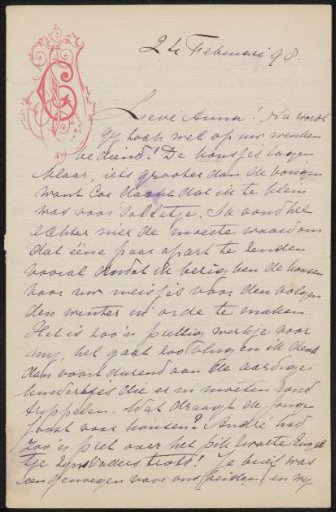 2de Februari 98.
Lieve Anna! Nu wordt
gy toch wel op uw wenken
bediend! De kousjes lagen
klaar, iets grooter dan de vorigen
want Coe dacht dat die te klein
was voor Polletje. Ik vond het
echter niet de moeite waard om
dat ééne paar apart te zenden
vooral omdat ik bezig ben de kousen
voor uw meisjes voor den volgen
den winter in orde te maken
Het is zoo'n prettig werkje voor
my, het gaat zoo vlug en ik denk
dan voortdurend aan de aardige
kindertjes die er in moeten rond
trippelen. Wat draagt de jonge
voor kousen? André had
zoo'n pret over het pikzwarte
tje zyns vaders trots! Je brief was
een genoegen voor ons beiden en wy